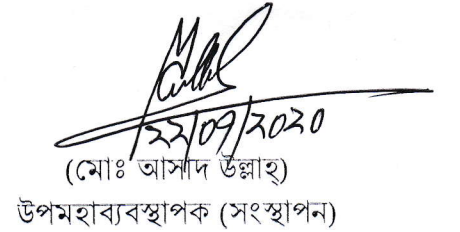 ২২/০৭/২০২০
(মোঃ আসাদ উল্লাহ্)
উপমহাব্যবস্থাপক (সংস্থাপন)